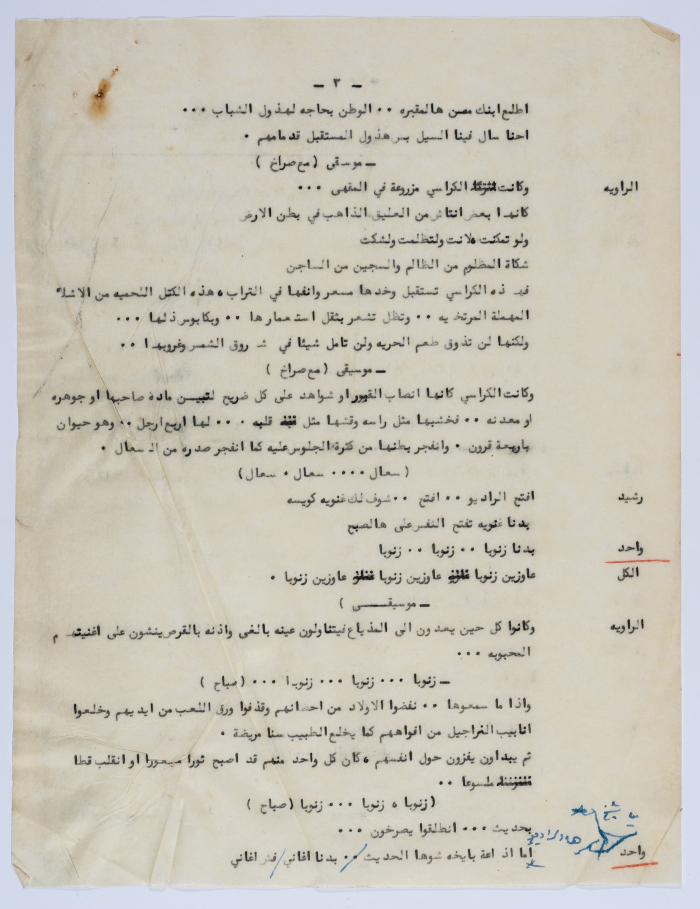 — ٣ —
اطلع ابنك مصن هالمقبره ٠٠ الوطن بحاجه لهذول الشباب ٠٠٠
احنا سال فينا السيل بس هذول المستقبل قدمامهم ٠
— موسيقى ( مع صراخ )
الراويه وكانت الكراسي مزروعة في المقهى ٠٠٠
كانها بعض انتاثر من العليق الذاهب في بطن الارض
ولو تمكنت لانت ولتظلمت ولشكت
شكاة المظلوم من الظالم والسجين من الساجن
فهذه الكراسي تستقبل وخدها مسعر وانفها في التراب ، هذه الكتل اللحميه من الاشلاء
المهملة المرتخيه ٠٠ وتظل تشعر بثقل استعمارها ٠٠ وبكابوس ذلها ٠٠٠
ولكنها لن تذوق طعم الحريه ولن تامل شيئا في شروق الشمس وغروبها ٠٠
— موسيقى ( مع صراخ )
وكانت الكراسي كانها انصاب القبور او شواهد على كل ضريح لتبيـن مادة صاحبها او جوهره
او معدنه ٠٠ فخشبها مثل راسه وقشها مثل قلبه ٠ ٠٠ لها اربع ارجل ٠٠ وهو حيوان
باربعة قرون ٠ وانفجر بطنها من كثرة الجلوس عليه كما انفجر صدره من السعال ٠
( سعال ٠٠٠٠ سعال ٠ سعال )
رشيد افتح الراديو ٠٠ افتح ٠٠ شوف لك غنويه كويسه
بدنا غنويه تفتح النفس على هالصبح
واحد بدنا زنوبا ٠٠ زنوبا ٠٠ زنوبا
الكل عاوزين زنوبا عاوزين زنوبا عاوزين زنوبا ٠
— موسيقــــى )
الراويه وكانوا كل حين يعدون الى المذياع فيتناولون عينه بالغى واذنه بالقرص ينشون على اغنيتهم
المحبوبه ٠٠٠
— زنوبا ٠٠٠ زنوبا ٠٠٠ زنوبا ٠٠٠ ( صياح )
واذا ما سمعوها ٠٠ نفضوا الاولاد من احضانهم وقذفوا ورق اللعب من ايديهم وخلعوا
انابيب الغراجيل من افواههم كما يخلع الطبيب سنا مريضة ٠
ثم يبداون يفزون حول انفسهم ، كان كل واحد منهم قد اصبح ثورا مسعورا او انقلب قطا
ملسوعا ٠٠
( زنوبا ، زنوبا ٠٠٠ زنوبا ( صياح )
بحديث ٠٠٠ انطلقوا يصرخون ٠٠٠
واحد اما اذاعة بايخه شوها الحديث ٠٠ بدنا اغاني / قثر اغاني